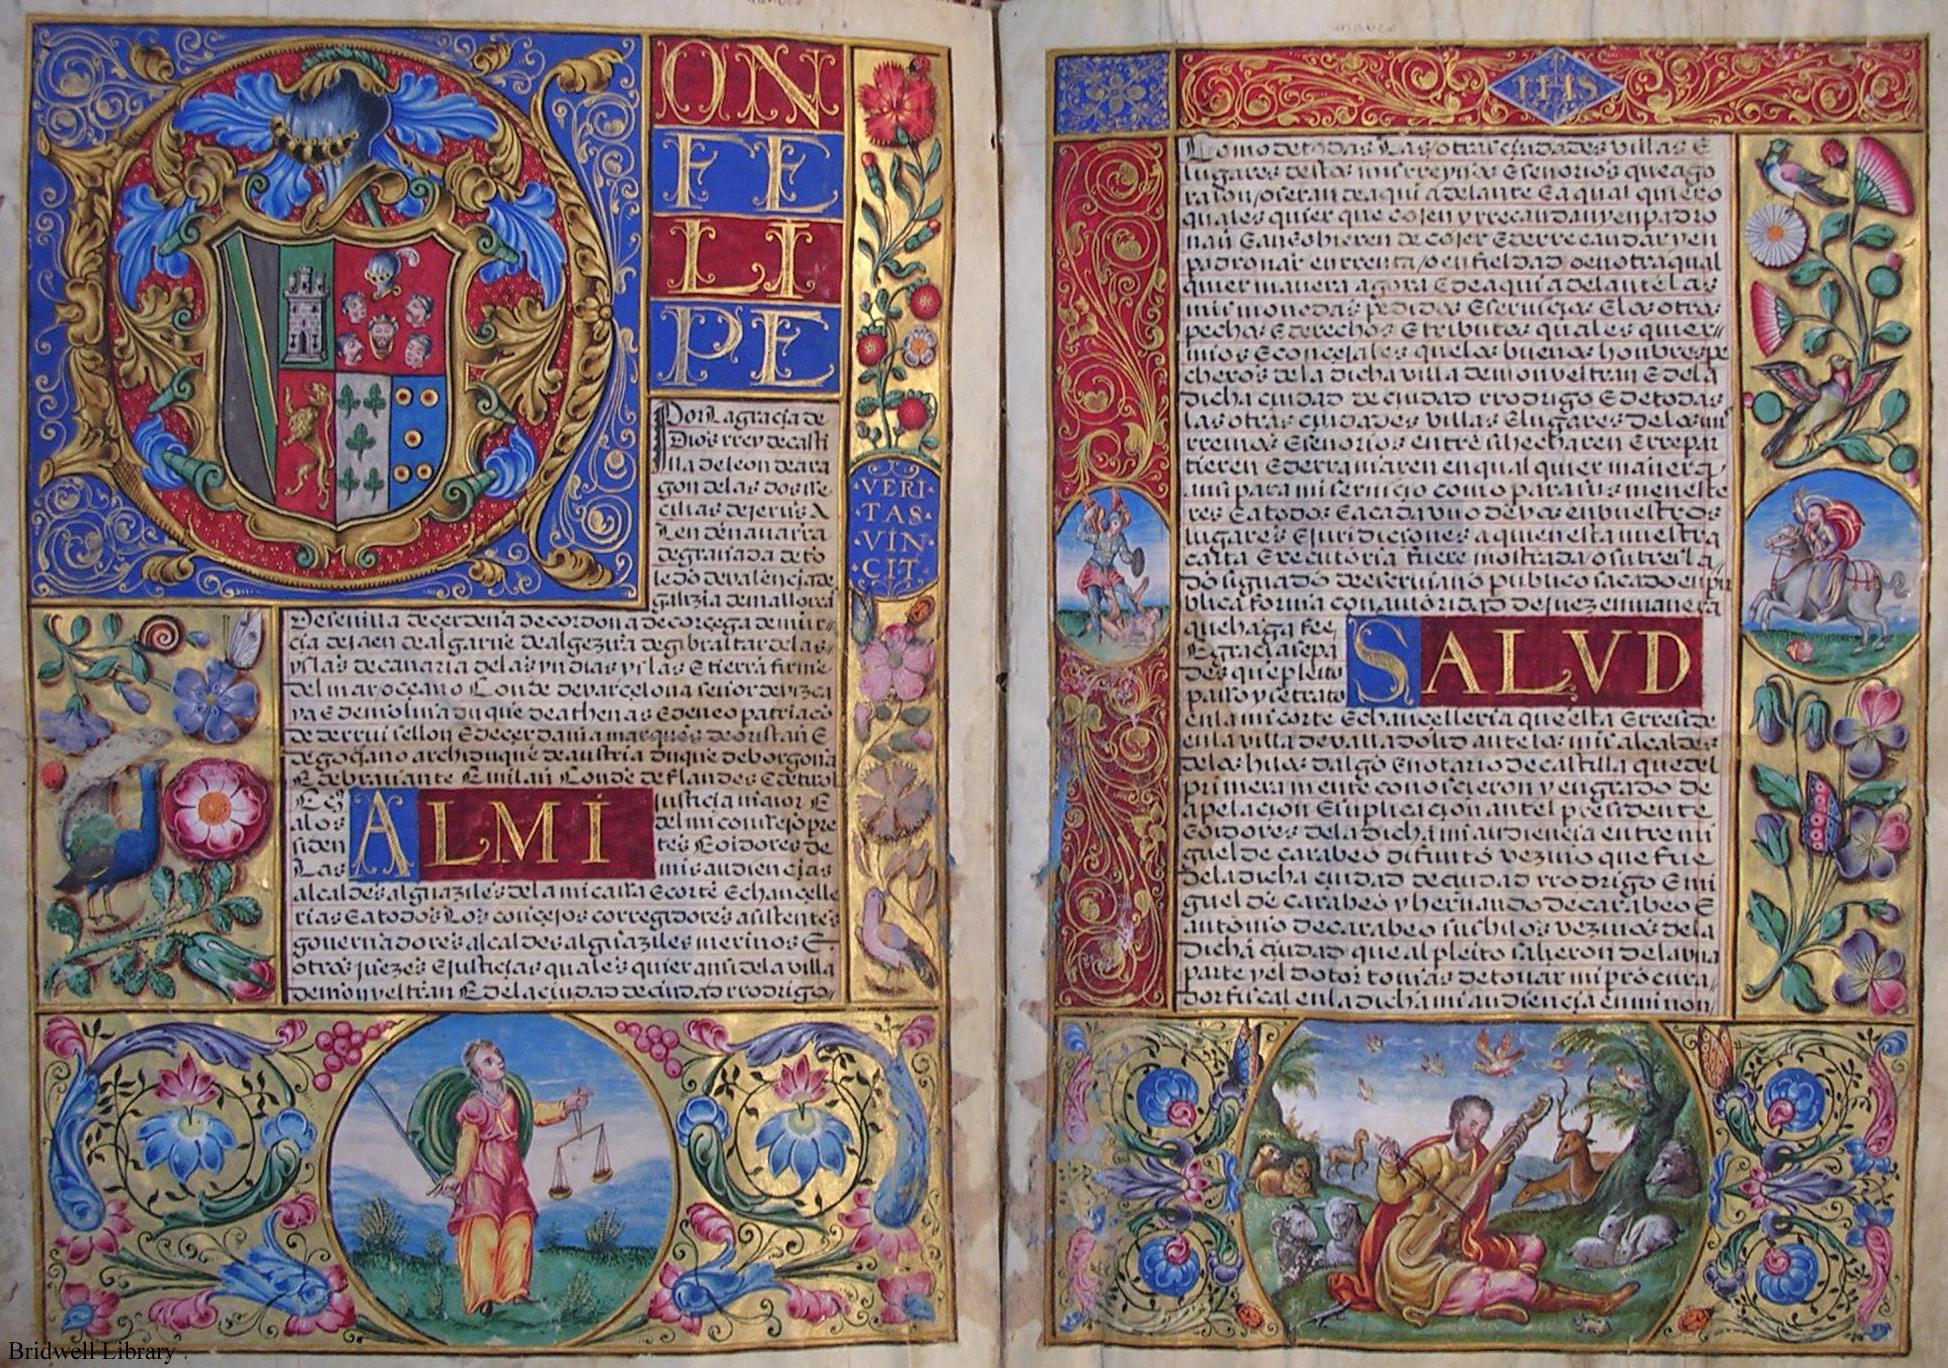 DON
FE
LI
PE
Por La gracia de
Dios rrey de casti
lla de leon de ara
gon de las dos se
cilias de jerusa
len de navarra
de granada de to
ledo de valencia de
galizia de mallorca
De sevilla de cerdeña de cordova de corçega de mur
çia de jaen de algarve de algezira de gibraltar de las
yslas de canaria de las yndias yslas E tierra firme
del mar oceano Conde de varçelona señor de vizca
ya E de molina duque de athenas E de neopatria
de rruisellon E de cerdania marques de oristan E
de goçiano archiduque de austria duque de borgoña
E de bravante E milan Conde de flandes E de tirol
Ec̃ ALMI justicia maior E
a los del mi consejo pre
siden tes E oidores de
Las mis audiençias
alcaldes alguaziles de la mi casa E corte E chancelle
rias E a todos Los conçejos corregidores asistentes
governadores alcaldes alguaziles merinos E
otros juezes E justiçias quales quier ansi de la villa
de monveltran E de la ciudad de ciudad rrodrigo
VERI
TAS
VIN
CIT
IHS
Como de todas Las otras ciudades villas E
lugares destos mis rreynos E señorios que ago
ra son / o seran de aqui adelante E a qual quier o
quales quier que cojen y rrecaudan y enpadro
nan E an E obieren de cojer E de rrecaudar y en
padronar en rrenta / o en fieldad o en otra qual
quier manera agora E de aqui adelante las
mis monedas pedidos E serviçios E los otros
pechos E derechos E tributos quales quier
mios E conçejales que los buenos honbres pe
cheros de la dicha villa de monveltran E de la
dicha ciudad de ciudad rrodrigo E de todas
las otras ciudades villas E lugares de los mis
rreinos E señorios entre si hecharen E rrepar
tieren E derramaren en qual quier manera
ansi para mi serviçio como para sus meneste
res E a todos E a cada uno de vos en vuestros
lugares E juridiçiones a quien esta nuestra
carta Executoria fuere mostrada / o su tresla
do signado de escrivano publico sacado en pu
blica forma con autoridad de juez en manera
que haga fee
SALVD
E gracia sepa
des que pleito
paso y se trato
en la mi corte E chancelleria que esta E rreside
en la villa de valladolid ante los mis alcaldes
de los hijos dalgo E notario de castilla que del
primera mente conoscieron y en grado de
apelaçion E suplicaçion ante el presidente
E oidores de la dicha mi audiençia entre mi
guel de carabeo difunto vezino que fue
de la dicha ciudad de ciudad rrodrigo E mi
guel de carabeo y hernando de carabeo E
antonio de carabeo sus hijos vezinos de la
dicha ciudad que al pleito salieron de la una
parte y el dotor tomas de tovar mi procura
dor fiscal en la dicha mi audiençia en mi non
Bridwell Library